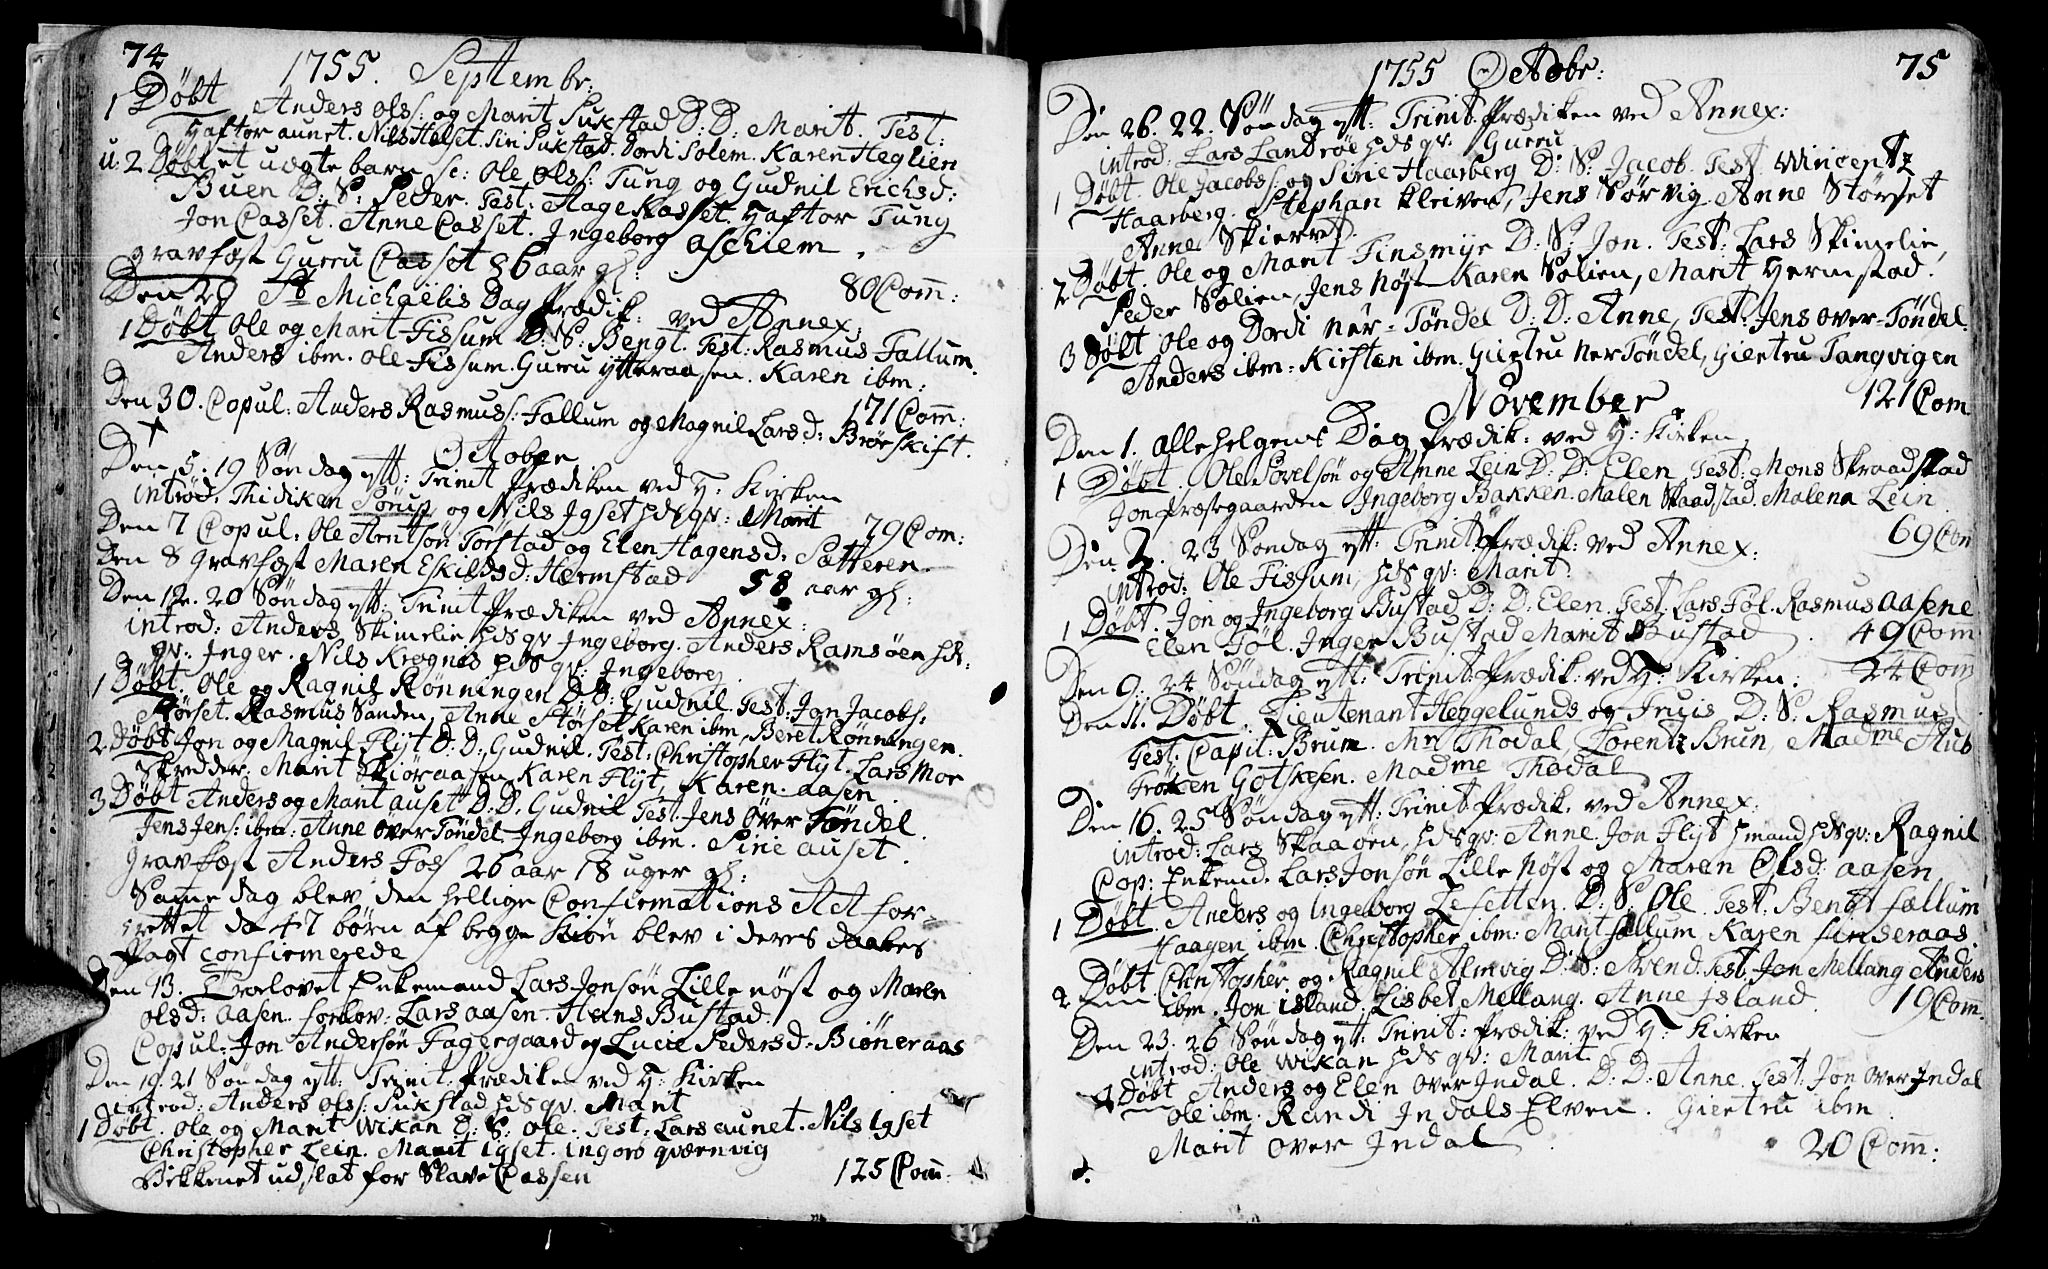 74 1755. Septembr:
1 Døbt Anders Ols: og Marit Sukstad D: D: Marit. Test:
Haftor aunet. Nils Helset. Siri Sukstad. Dordi Solem. Karen Heglien
u. 2 Døbt et uægte barn sc: Ole Ols: Tung og Gudnil Erichsd:
Buen D: S: Peder. Test: Aage Kasset. Haftor Tung
Jon Casset. Anne Casset. Ingeborg aschiem.
gravfæst Guru Casset 86 aar gl:
80 Com:
Den 29 St Michaëlis Dag Prædik: ved Annex,
1 Døbt Ole og Marit Fissum D: S: Bengt. Test: Rasmus Fallum.
Anders ibm. Ole Fissum. Guru ytteraasen. Karen ibm:
171 Com:
Den 30. Copul: Anders Rasmus: Fallum og Magnil Lars d: Brøskift.
October
Den 5. 19 Søndag ytt: Trinit Prædiken ved H: Kirken
introd. Thidikan Sønist og Nils Igset hds qv: Marit
79 Com:
Den 7 Copul: Ole Arntsøn Tørstad og Elen Hagensd: Sætteren.
Den 8 gravfæst Maren Eskildsd: Hærmstad 58 aar gl:
Den 12. 20 Søndag ytt: Trinit Prædiken ved Annex:
introd: Anders Skimelie hds qv Ingeborg. Anders Ramsøen hds:
qv: Inger. Nils Krognes hds qv: Ingeborg
1 Døbt. Ole og Ragnil Rønningen D D: Gudnil. Test: Jon Jacobs:
Størset. Rasmus Sanden, Anne Størset Karen ibm, Beret Rønningen.
2 Døbt Jon og Magnil Flyt D: D: Gudnil. Test: Christopher Flyt. Lars Moe
Skredder: Marit Skiøraasen Karen Flyt, Karen aasen
3 Døbt Anders og Marit auset D: D. Gudnil Test: Jens Over Tøndel
Jens Jens: ibm: Anne Over Tøndel Ingeborg ibm. Sine auset.
gravfæst Anders Foss 26 aar 18 uger gl:
Samme dag blev den hellige Confirmations Act for-
rettet da 47 børn af begge Kiøn blev i deres daabes
Pagt confirmerede
Den 13. Trolovet Enkemand Lars Jonsøn Lille nøst og Maren
Olsd: aasen. forlov: Lars aasen. Hans Bustad.
Copul: Jon Andersøn Fagergaard og Lucie Pedersd: Biøneraas
Den 19. 21 Søndag ytt: Trinit: Prædiken ved H: Kirken
introd: Anders Ols: Sukstad hds qv. Marit
1 Døbt. Ole og Marit Wikan D: S: Ole. Test: Lars aunet. Nils Igset
Christopher Lein. Marit Igset. ingorø qværnvig
Bekkenet udslat for Slave Cassen
125 Com:
1755 Octobr: 75
Den 26. 22. Søndag ytt: Trinit. Prædiken ved Annex:
introd: Lars Landrøe hds qv: Gurru
1 Døbt. Ole Jacobs: og Sirie Haarberg D: S: Jacob. Test Wincentz
Haarberg. Stephan Kleiven, Jens Sørvig. Anne Størset
Anne Skierret.
2 Døbt. Ole og Marit Finsmyr D: S: Jon. Test: Lars Skimelie,
Peder Solien, Jens Nøst Karen Solien, Marit Hermstad.
3 Døbt Ole og Dordi Nær-Tøndel D: D: Anne, Test: Jens over-Tøndel.
Anders ibm: Kirsten ibm. Giertru Ner Tøndel, Giertru Tangvigen
121 Com
November
Den 1. allehelgens Dag Prædik: ved H: Kirken
1 Døbt. Ole Povelsøn og Anne Lein D: D: Elen Test: Mons Skraadstad
Jon Præstegaarden Ingeborg Bakken. Malen Skaadstad. Malena Lein.
69 Com
Den 2. 23 Søndag ytt: Trinit Prædik: ved Annex:
introd: Ole Fissum, hds qv: Marit.
1 Døbt. Jon og Ingeborg Bustad D: D: Elen. Test: Lars Føl. Rasmus aasene
Elen Føl. Inger Bustad Marit Bustad.
49 Com
Den 9. 24 Søndag ytt: Trinit Prædik: ved H: Kirken.
24 Com
Den 11. Døbt. Lieutenant Heggelunds og Fruis D: S: Rasmus
Test: Capit: Brum. Mr Thodal, Lorentz Brun, Madme Hub
Frøken Gotskesen. Madme Thodal
Den 16. 25 Søndag ytt: Trinit Prædik: ved Annex:
introd: Lars Skaaøen, hds qv: Anne Jon Flyt hmand hds qv: Ragnil
Cop: Enkemd. Lars Jonsøn Lille Nøst og Maren Olsd: aasen
1 Døbt. Anders og Ingeborg Lefetten. D: S: Ole Test: Bengt fallum
Haagen ibm. Christopher ibm: Marit fallum Karen finseraas.
2 Døbt Christopher og Ragnil Almvig D: S: Svend. Test: Jon Mellang Anders
ibm. Jon island. Lisbet Mellang. Anne Island
19 Com:
Den 23. 26 Søndag ytt: Trinit: Prædik: ved H: Kirken
introd: Ole Wikan hds qv: Marit
1 Døbt Anders og Elen Over Indal. D: D: Anne. Test: Jon Over Indal
Ole ibm. Randi Indals Elven. Giertru ibm
Marit Over Indal
20 Com: